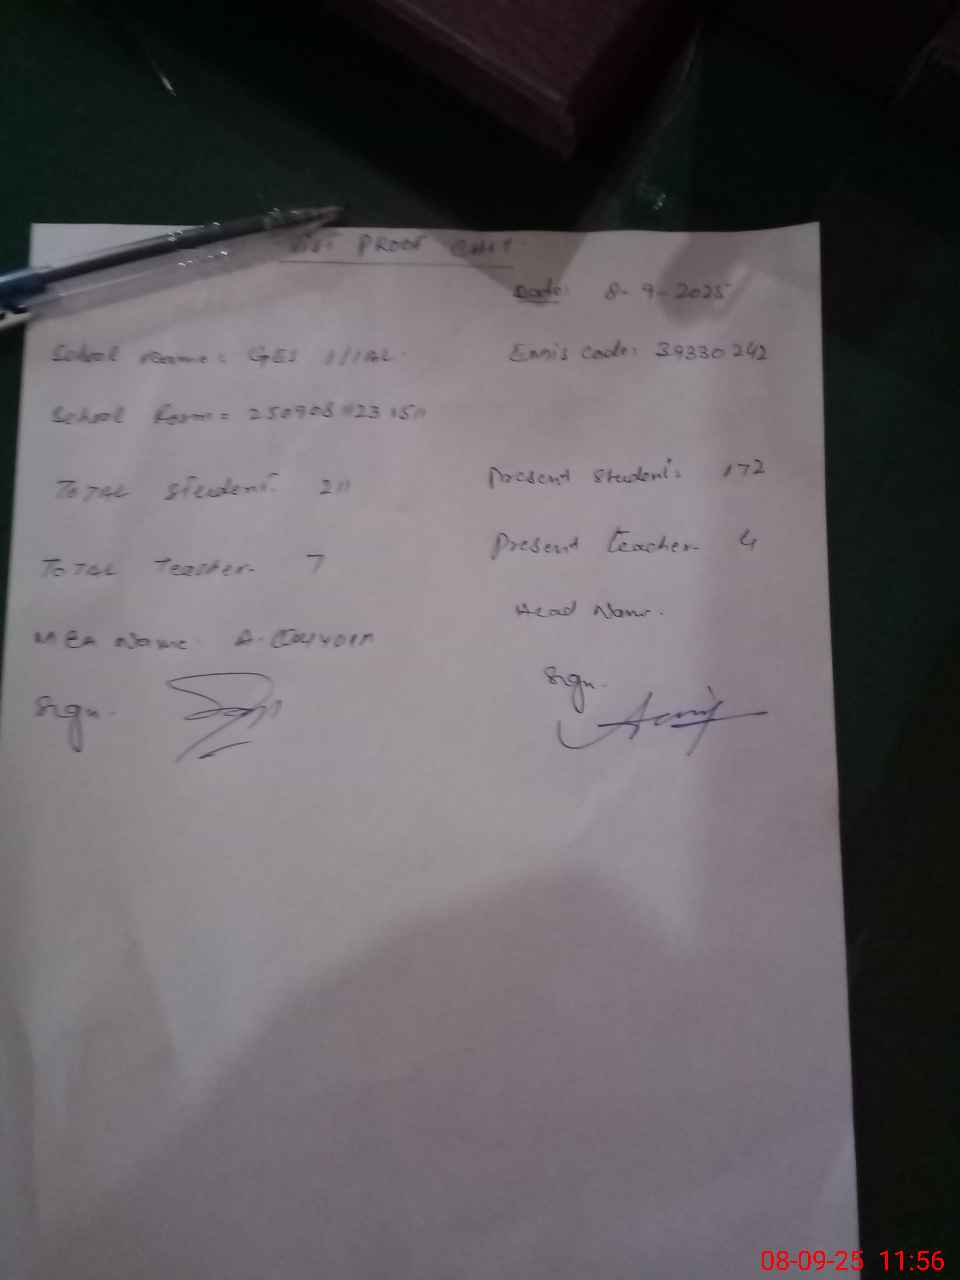 PROOF CHIT
Date: 8-9-2025
School Name: GES
Emis Code: 39330242
School Form =
Total Student: 211
Present Student: 172
Total Teacher- 7
Present teacher- 4
Head Name.
MEA Name.
Sign.
Sign.
08-09-25 11:56